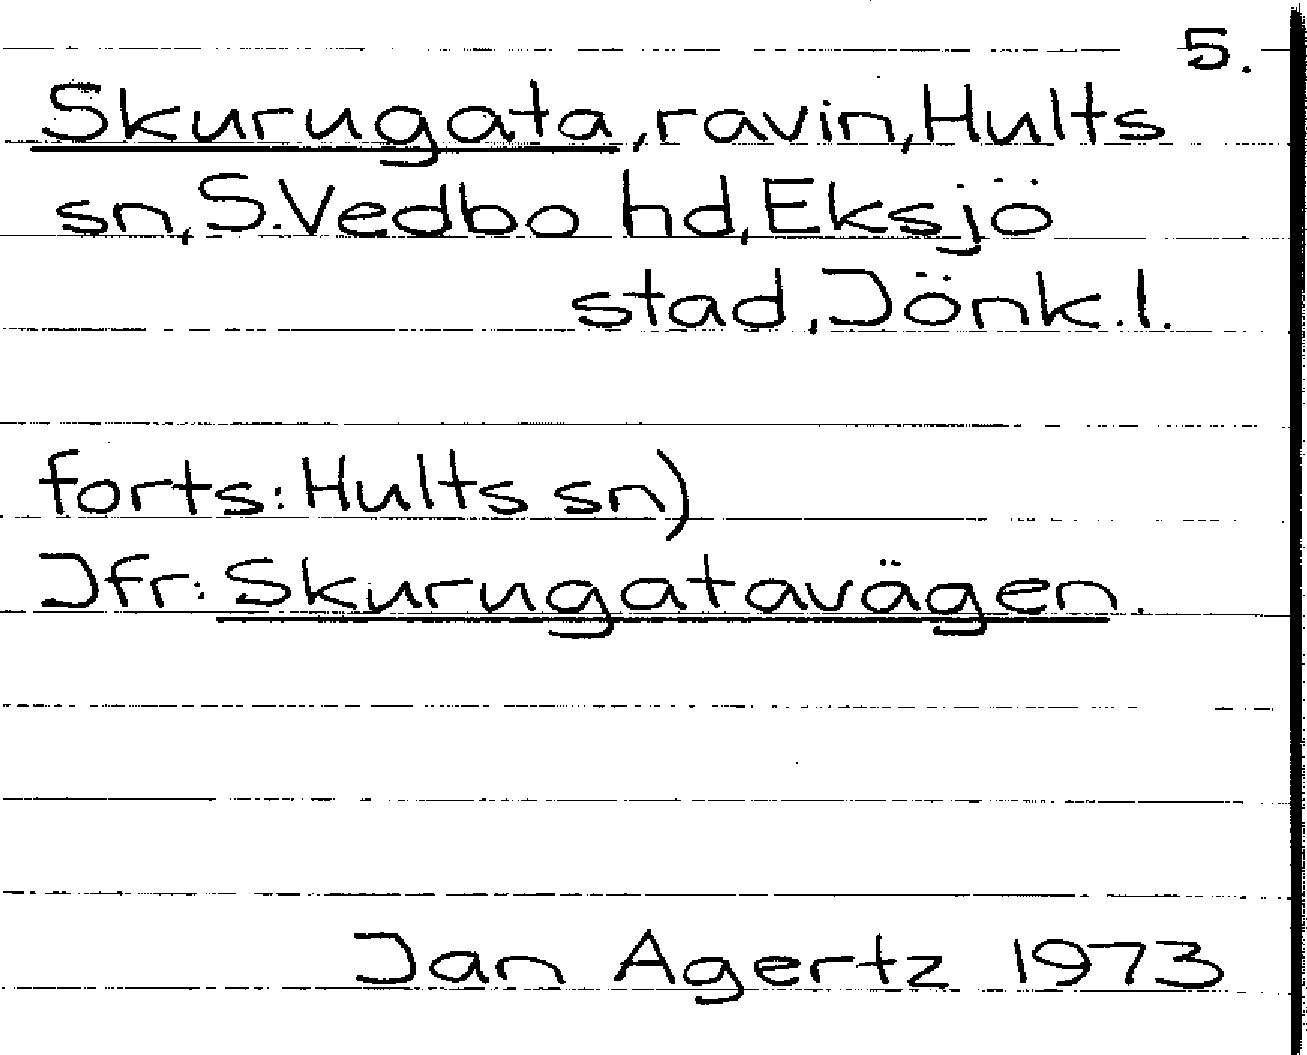 5.
Skurugata, ravin, Hults
sn, S. Vedbo hd, Eksjö
stad, Jönk. l.
forts: Hults sn)
Jfr: Skurugatavägen.
Jan Agertz 1973